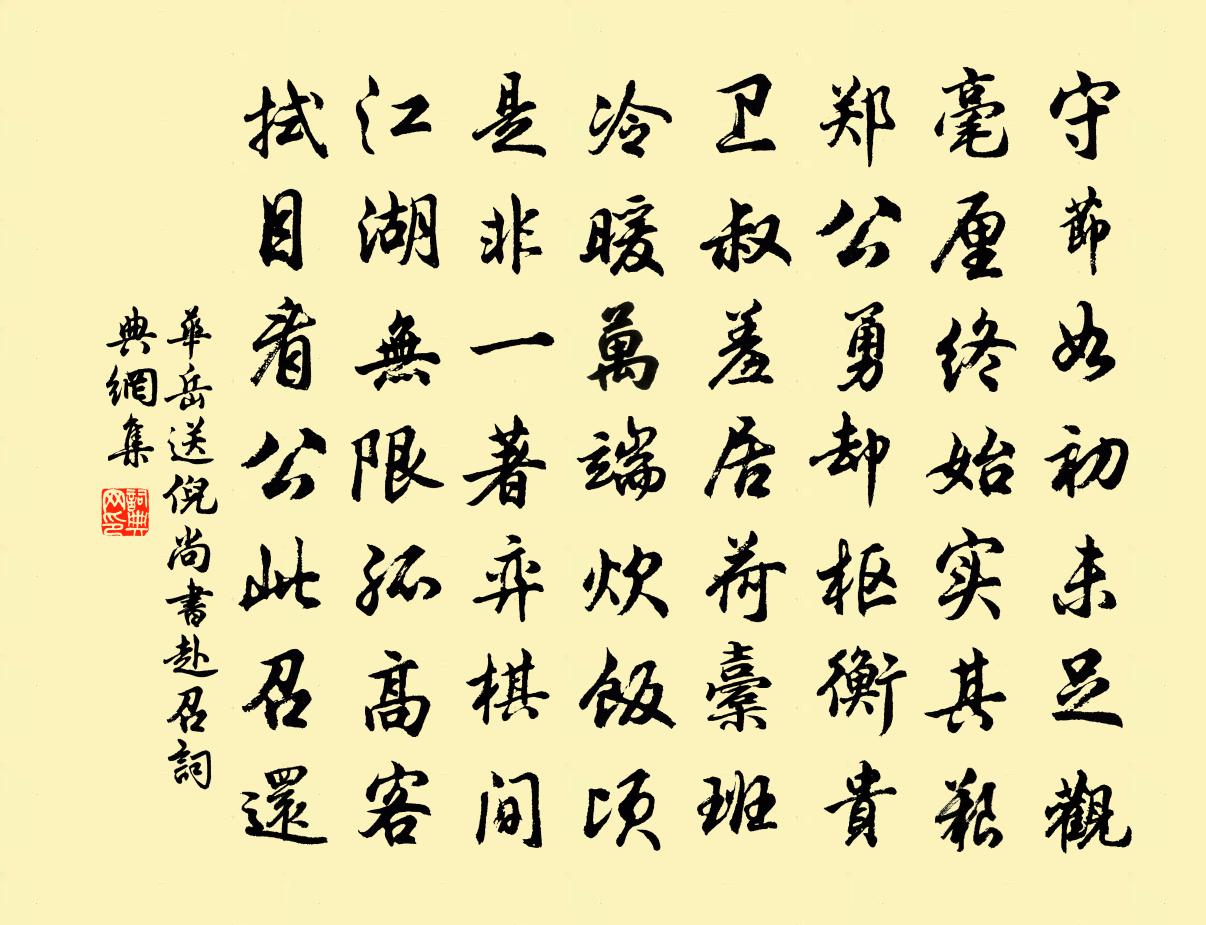 守節如初未足觀
毫厘终始实其艱
郑公勇却枢衡貴
卫叔羞居荷橐班
冷暖萬端炊飯頃
是非一著弈棋间
江湖無限孤高客
拭目看公此召還
華岳送倪尚書赴召詞
典網集
詞典网印